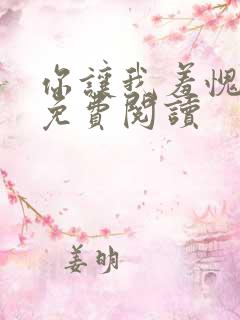 你讓我羞愧
免費閱讀
姜明